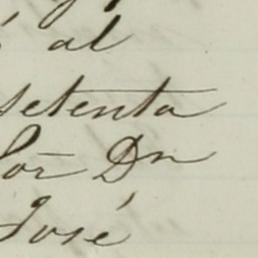 al
setenta
Sor Dn
José